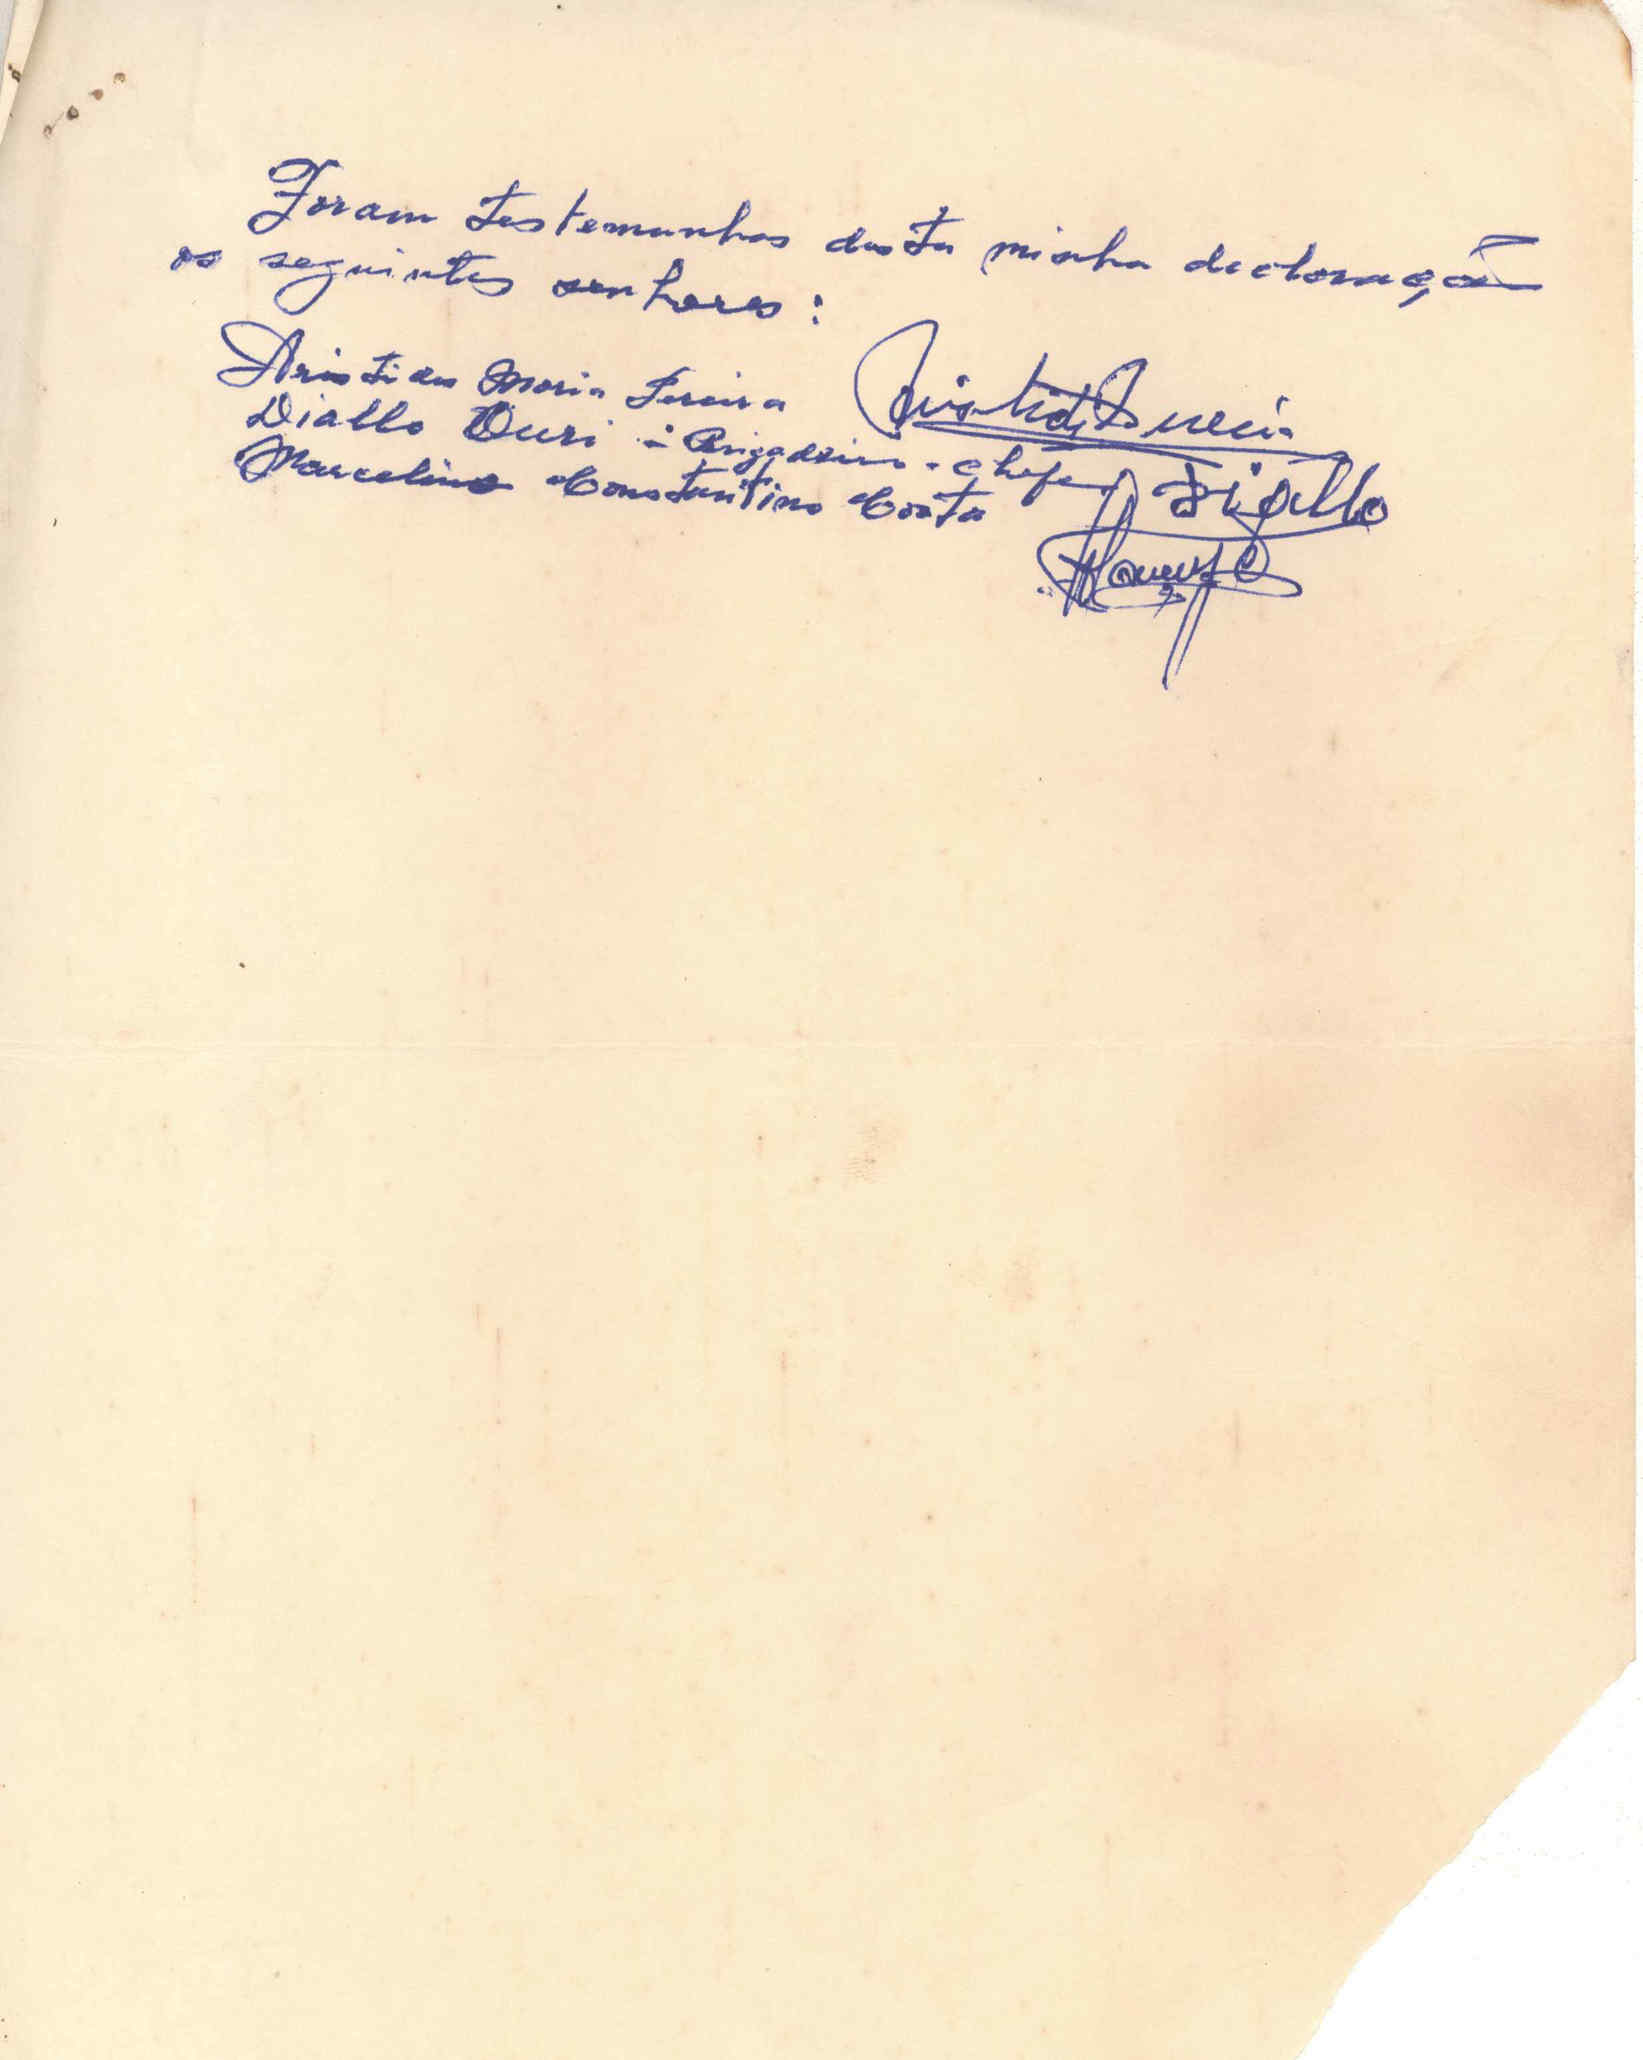 Foram testemunhas desta minha declaração
os seguintes senhores:
Aristides Maria Pereira
Diallo Ouri - Brigadeiro-chefe Diallo
Marcelino Constantino Costa